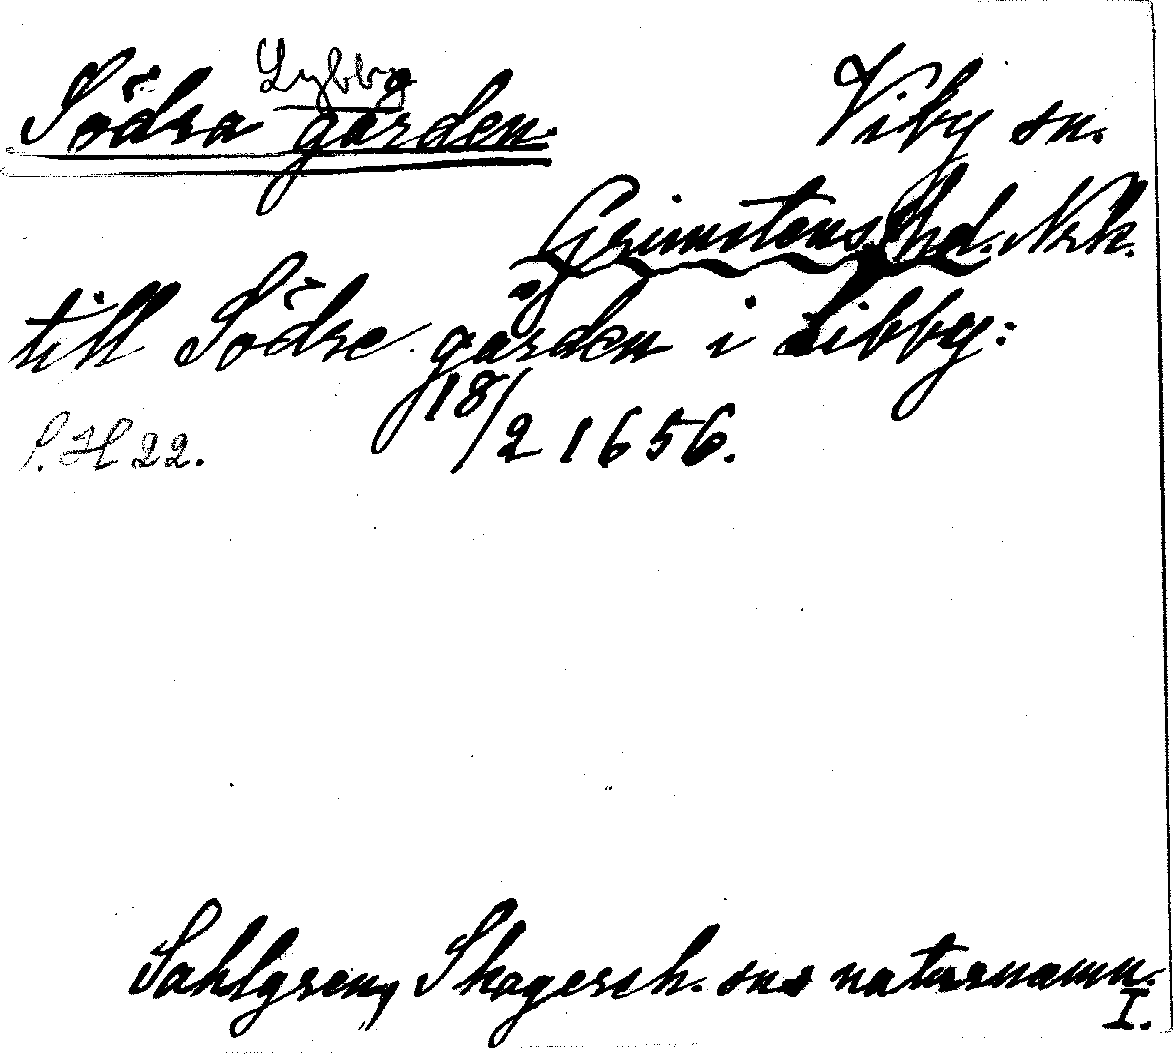 Lybby
Södra gården. Viby sn.
Grimstens hd. Nrk.
till Södre gården i Libby:
18/2 1656.
P. H 22.
Sahlgren, Skagersh. sns naturnamn.
I.